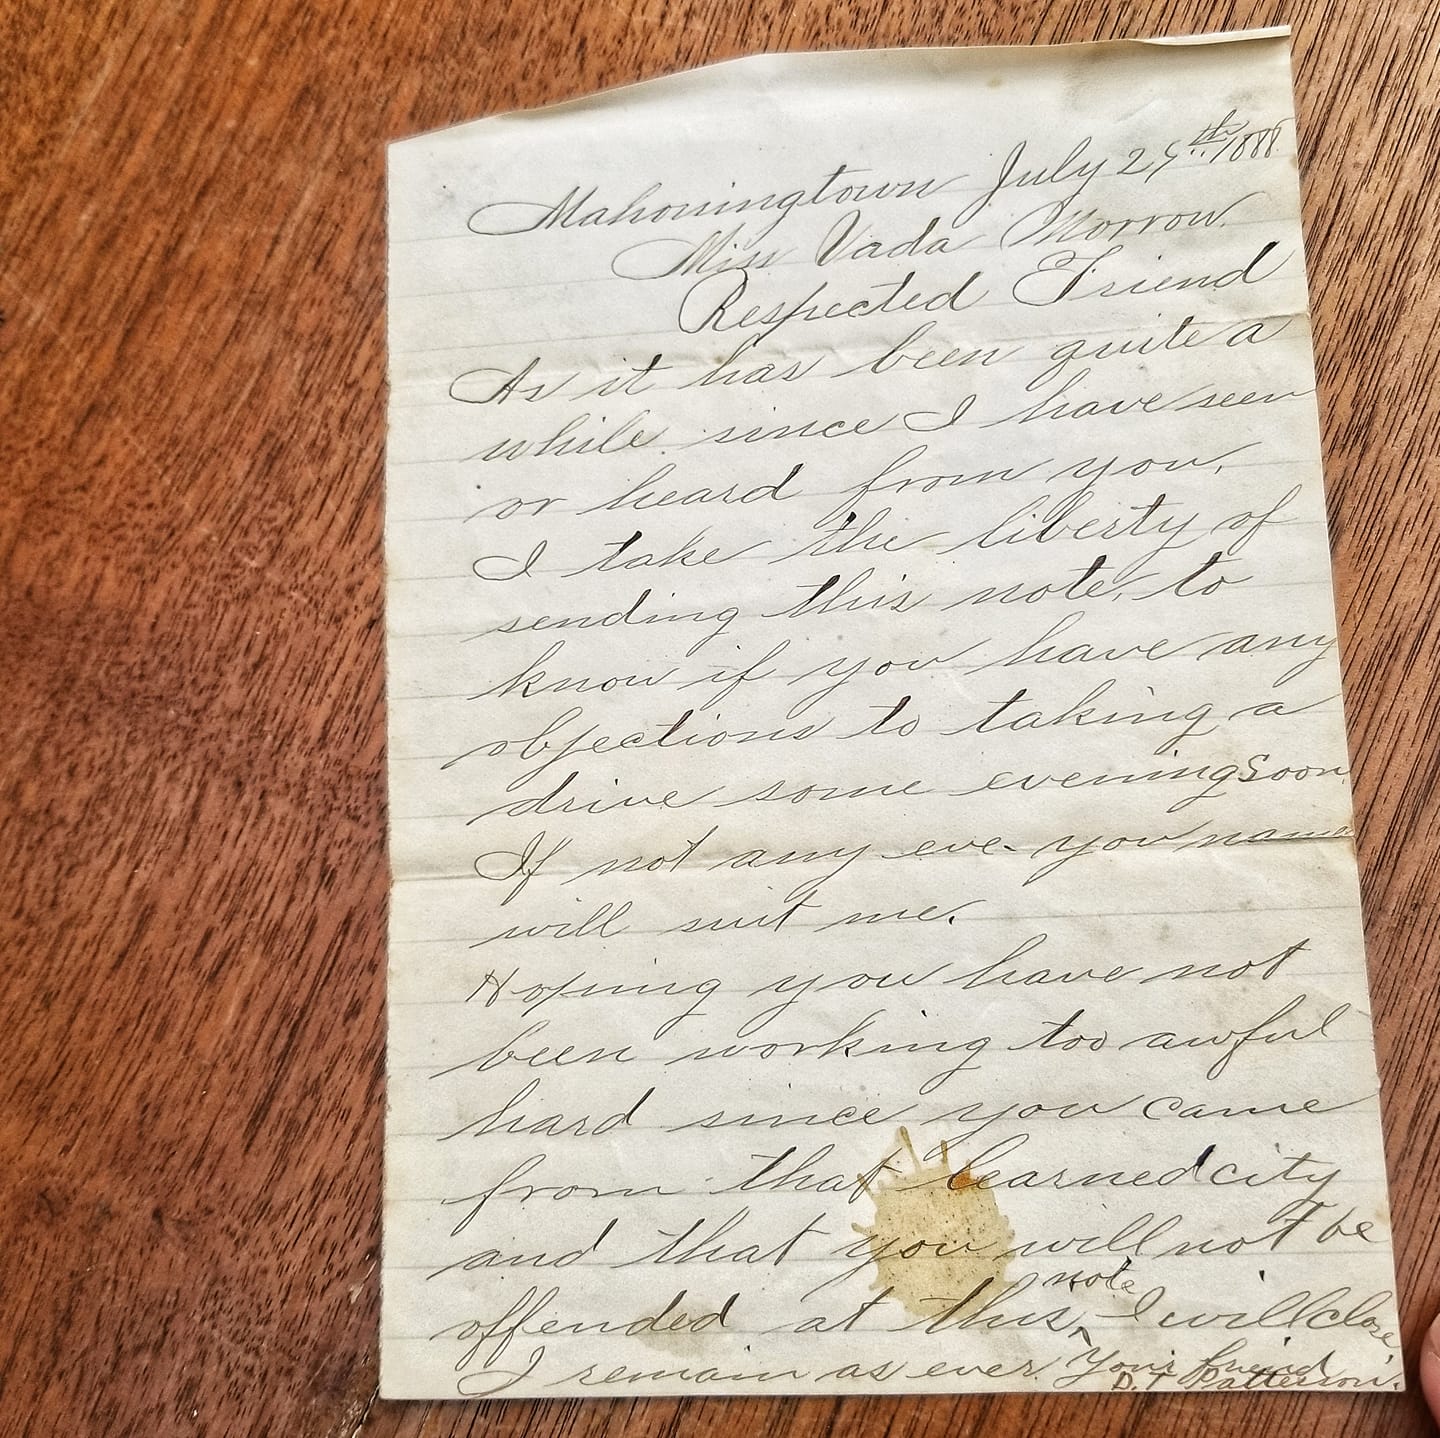 Mahoningtown July 29th 1888.
Miss Vada Morrow.
Respected Friend
As it has been quite a
while since I have seen
or heard from you,
I take the liberty of
sending this note, to
know if you have any
objections to taking a
drive some evening soon.
If not any eve. you name
will suit me.
Hoping you have not
been working too awful
hard since you came
from that learned city
and that you will not be
offended at this note I will close,
I remain as ever. Your friend
D. T Patterson.